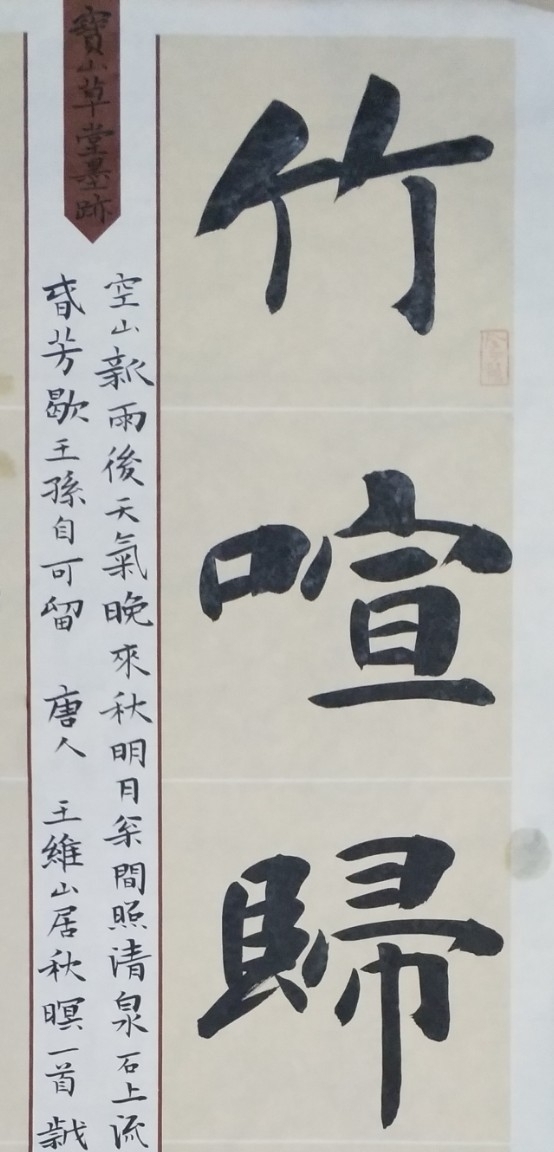 竹喧歸
寶山草堂墨跡
空山新雨後天氣晚來秋明月枀間照清泉石上流
旾芳歇王孫自可留 唐人 王維山居秋暝一首